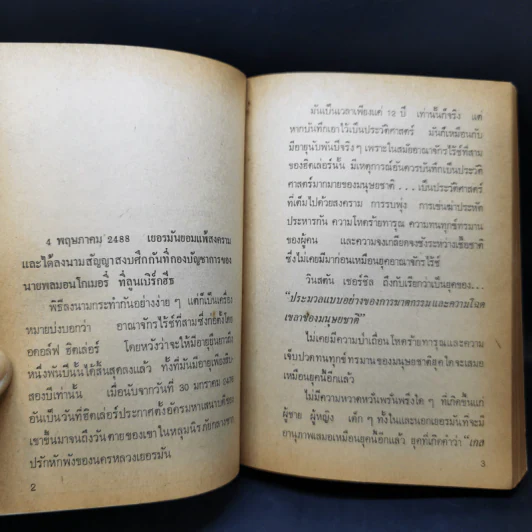 4 พฤษภาคม 2488 เยอรมันยอมแพ้สงคราม
และได้ลงนามสัญญาสงบศึกกันที่กองบัญชาการของ
นายพลมอนโกเมอรี่ ที่ลูนเบิร์กฮีธ
พิธีลงนามกระทำกันอย่างง่าย ๆ แต่ก็เป็นเครื่อง
หมายบ่งบอกว่า อาณาจักรไร้ซ์ที่สามซึ่งก่อตั้งโดย
อดอล์ฟ ฮิตเล่อร์ โดยหวังว่าจะให้มีอายุยืนยาวถึง
หนึ่งพันปีนั้นได้สิ้นสุดลงแล้ว ทั้งที่มันมีอายุเพียงสิบ
สองปีเท่านั้น เมื่อนับจากวันที่ 30 มกราคม
อันเป็นวันที่ฮิตเล่อร์ประกาศตั้งอัครมหาเสนาบดีของ
เขาขึ้นมาจนถึงวันตายของเขาในหลุมนิรภัยกลางซาก
ปรักหักพังของนครหลวงเยอรมัน
2
มันเป็นเวลาเพียงแค่ 12 ปี เท่านั้นก็จริง แต่
หากบันทึกเอาไว้เป็นประวัติศาสตร์ มันก็เหมือนกับ
มีอายุนับพันปีจริง ๆ เพราะในสมัยอาณาจักรไร้ซ์ที่สาม
ของฮิตเล่อร์นั้น มีเหตุการณ์อันควรบันทึกเป็นประวัติ
ศาสตร์มากมายของมนุษยชาติ . . . เป็นประวัติศาสตร์
ที่เต็มไปด้วยสงคราม การรบพุ่ง การเข่นฆ่าประหัต
ประหารกัน ความโหดร้ายทารุณ ความทนทุกข์ทรมาน
ของผู้คน และความจงเกลียดจงชังระหว่างเชื้อชาติ
ซึ่งไม่เคยมีมาก่อนเหมือนยุคอาณาจักรไร้ซ์
วินสตัน เชอร์ชิล ถึงกับเรียกว่าเป็นยุคของ...
"ประมวลแบบอย่างของการฆาตกรรมและความโฉด
เขลาของมนุษยชาติ"
ไม่เคยมีความป่าเถื่อน โหดร้ายทารุณและความ
เจ็บปวดทนทุกข์ทรมานของมนุษยชาติยุคใดจะเสมอ
เหมือนยุคนี้อีกแล้ว
ไม่มีความหวาดหวั่นพรั่นพรึงใด ๆ ที่เกิดขึ้นแก่
ผู้ชาย ผู้หญิง เด็ก ๆ ทั้งในและนอกเยอรมันที่จะมี
อานุภาพเสมอเหมือนยุคนี้อีกแล้ว ยุคที่เกิดคำว่า "เกส
3